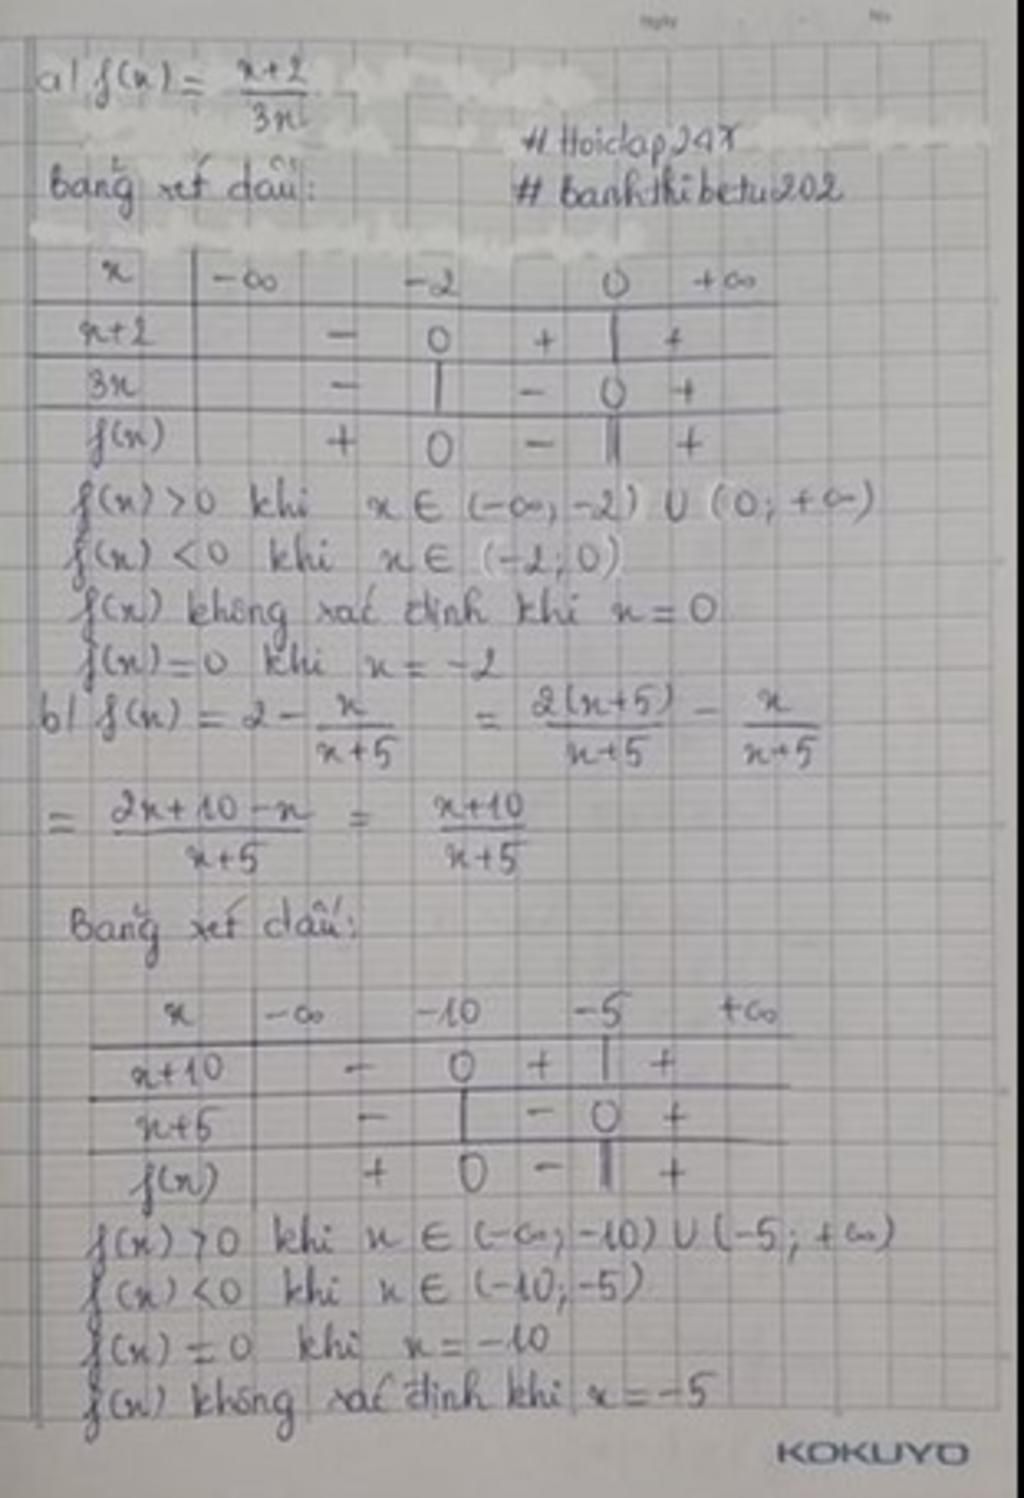 Ngày No
a) f(x) = (x+2)/(3x)
# Hoidap247
Bảng xét dấu:
# banhthibetu202
x | -∞ -2 0 +∞
x+2 | - 0 + | +
3x | - | - 0 +
f(x) | + 0 - || +
f(x) > 0 khi x ∈ (-∞; -2) ∪ (0; +∞)
f(x) < 0 khi x ∈ (-2; 0)
f(x) không xác định khi x = 0
f(x) = 0 khi x = -2
b) f(x) = 2 - x/(x+5) = 2(x+5)/(x+5) - x/(x+5)
= (2x+10-x)/(x+5) = (x+10)/(x+5)
Bảng xét dấu:
x | -∞ -10 -5 +∞
x+10 | - 0 + | +
x+5 | - | - 0 +
f(x) | + 0 - || +
f(x) > 0 khi x ∈ (-∞; -10) ∪ (-5; +∞)
f(x) < 0 khi x ∈ (-10; -5)
f(x) = 0 khi x = -10
f(x) không xác định khi x = -5
KOKUYO